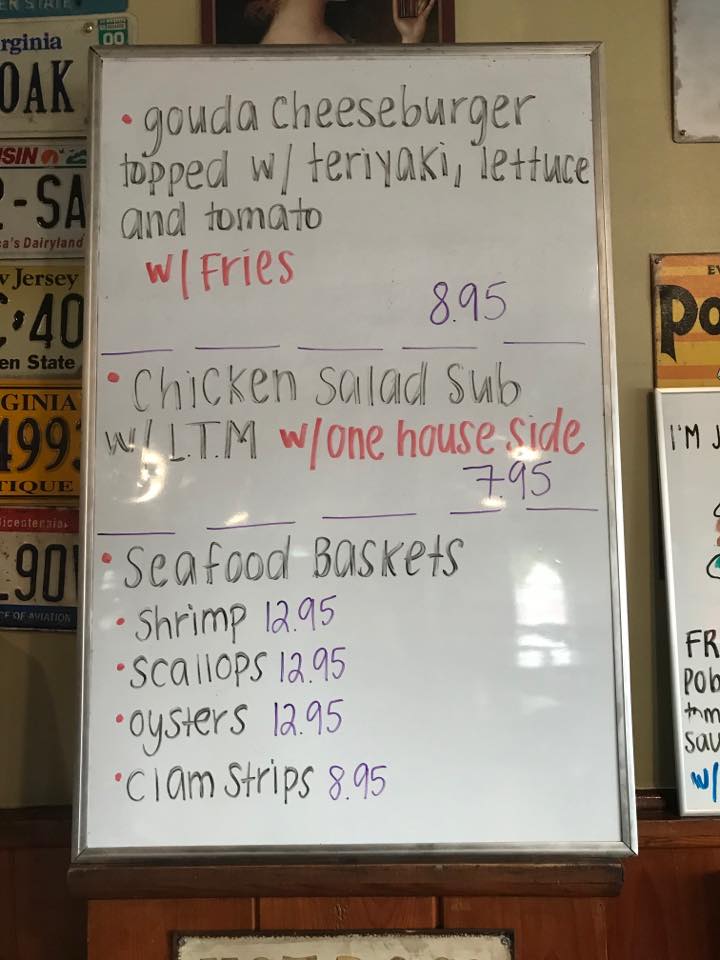 rginia
00
OAK
SIN
-SA
a's Dairyland
w Jersey
C·40
en State
GINIA
499
TIQUE
Bicentennial
90
CE OF AVIATION
• gouda cheeseburger
topped w/ teriyaki, lettuce
and tomato
w/ Fries
8.95
• Chicken Salad Sub
w/ L.T.M w/ one house side
7.95
• Seafood Baskets
• Shrimp 12.95
• Scallops 12.95
• oysters 12.95
• Clam Strips 8.95
Po
I'M J
FR
pob
sau
w/